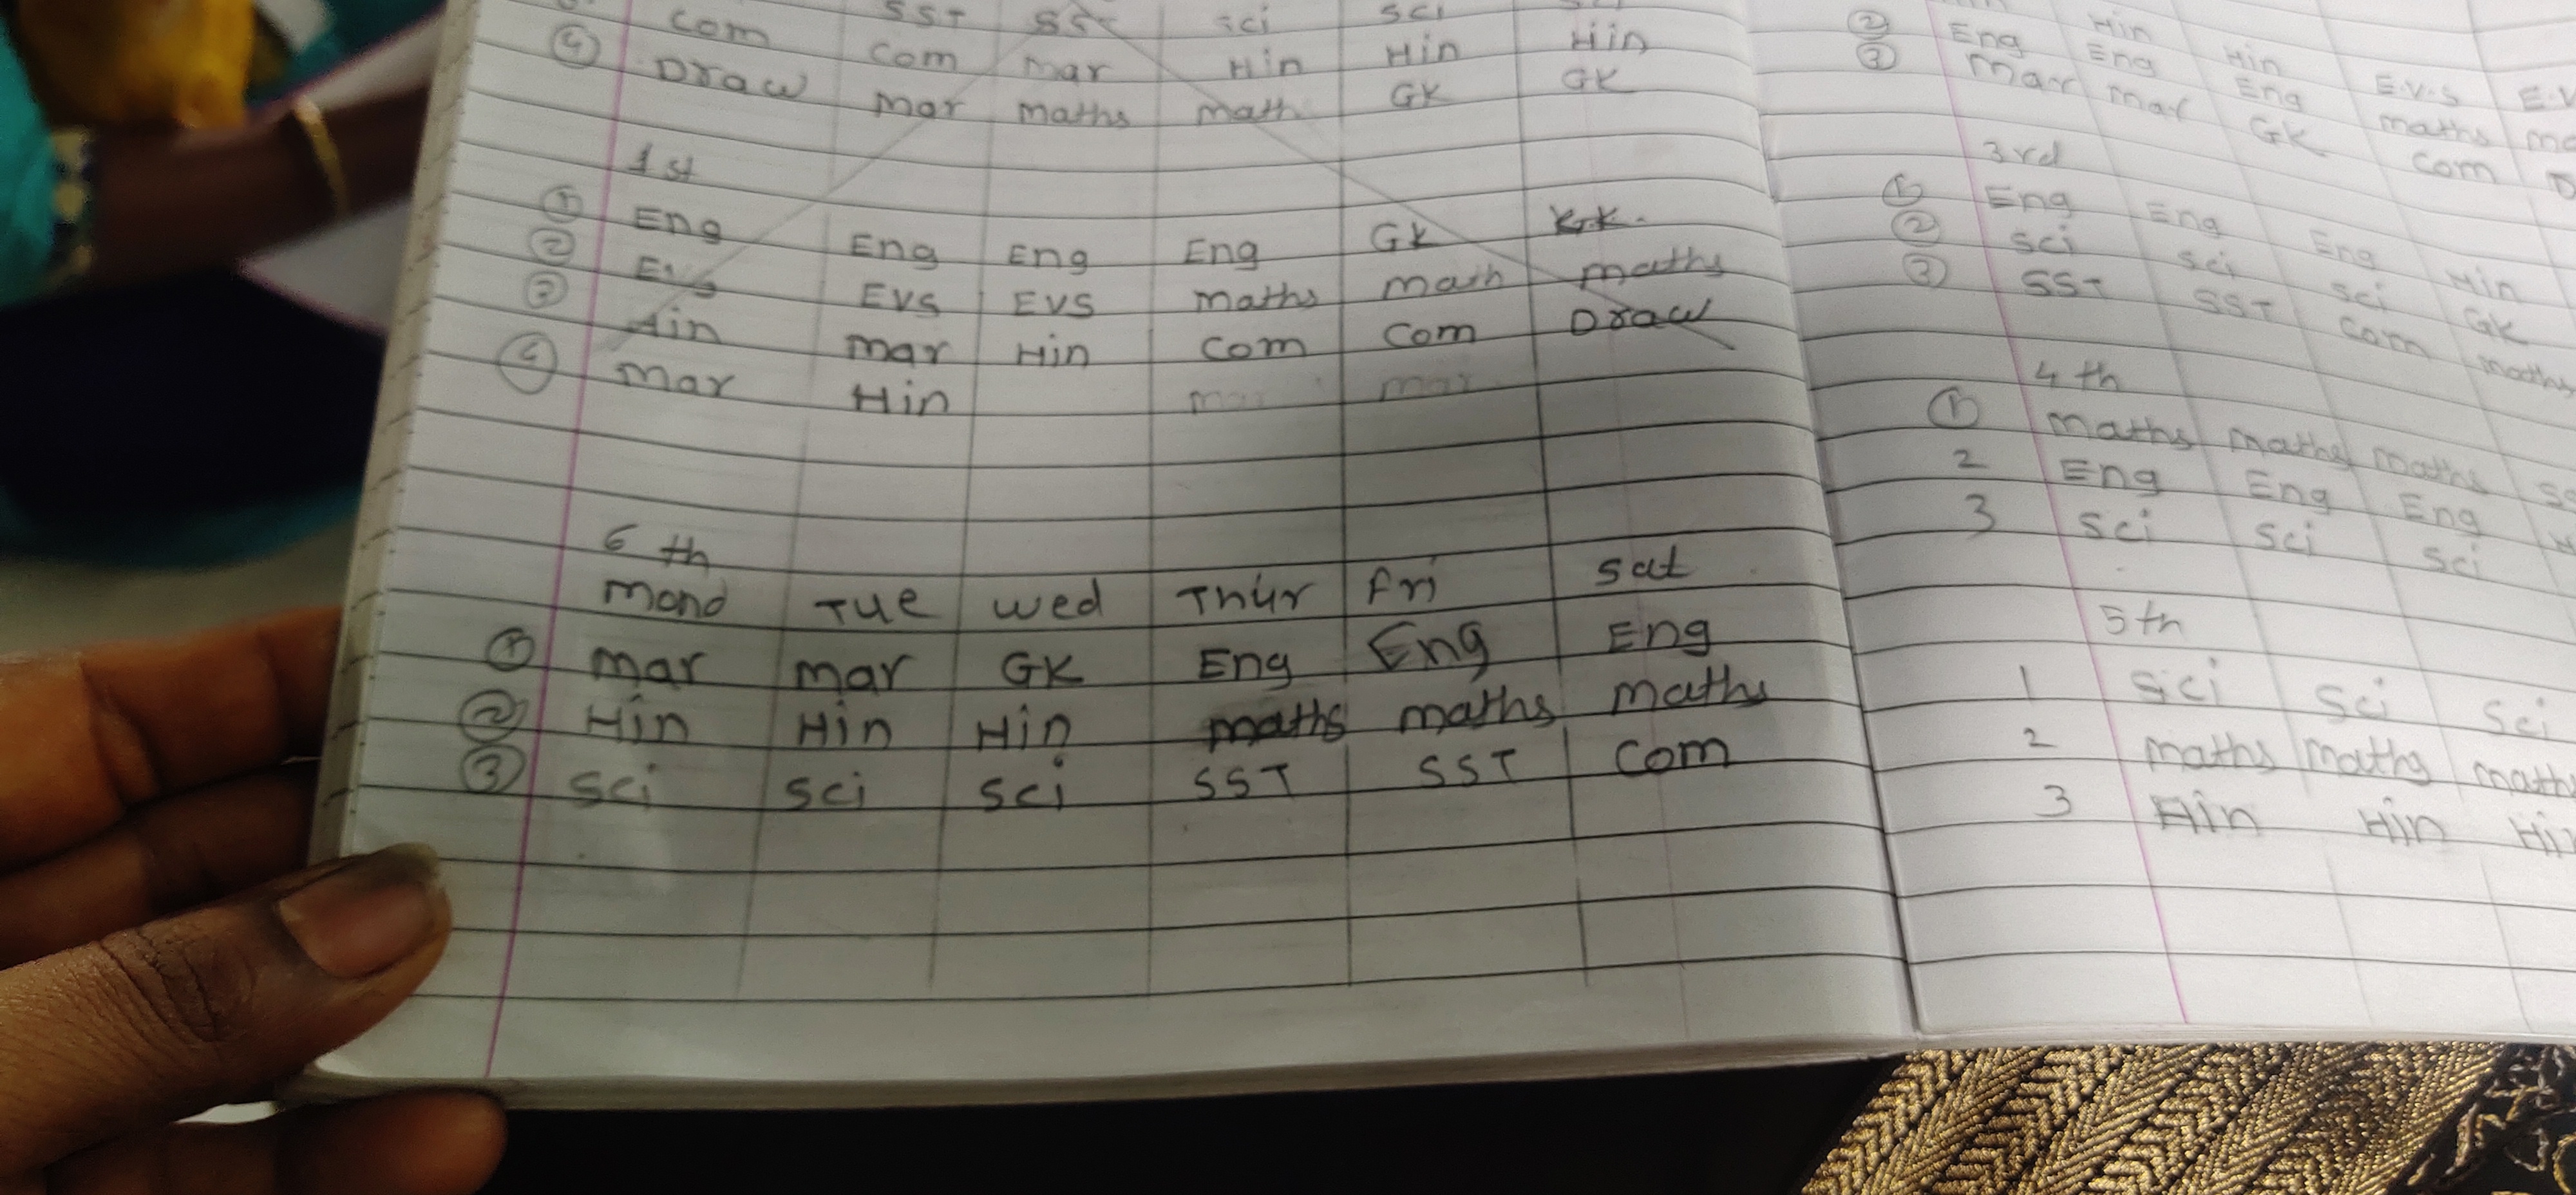 com SST SST sci sci
④ Draw com mar Hin Hin Hin
mar maths math GK GK
1st
① Eng Eng Eng Eng GK
② Evs EVS EVS maths math maths
③ Hin mar Hin com com Draw
④ mar Hin mar mar
6th
mond Tue wed Thur Fri sat
① mar mar GK Eng Eng Eng
② Hin Hin Hin maths maths maths
③ sci sci sci SST SST com
② Eng Hin Hin E.V.S E.V
③ Mar Eng Eng maths
mar GK com
3rd
① Eng Eng Eng Hin
② sci sci sci GK
③ SST SST com maths
4th
① maths maths maths
2 Eng Eng Eng
3 sci sci sci
5th
1 sci sci sci
2 maths maths maths
3 Hin Hin Hi